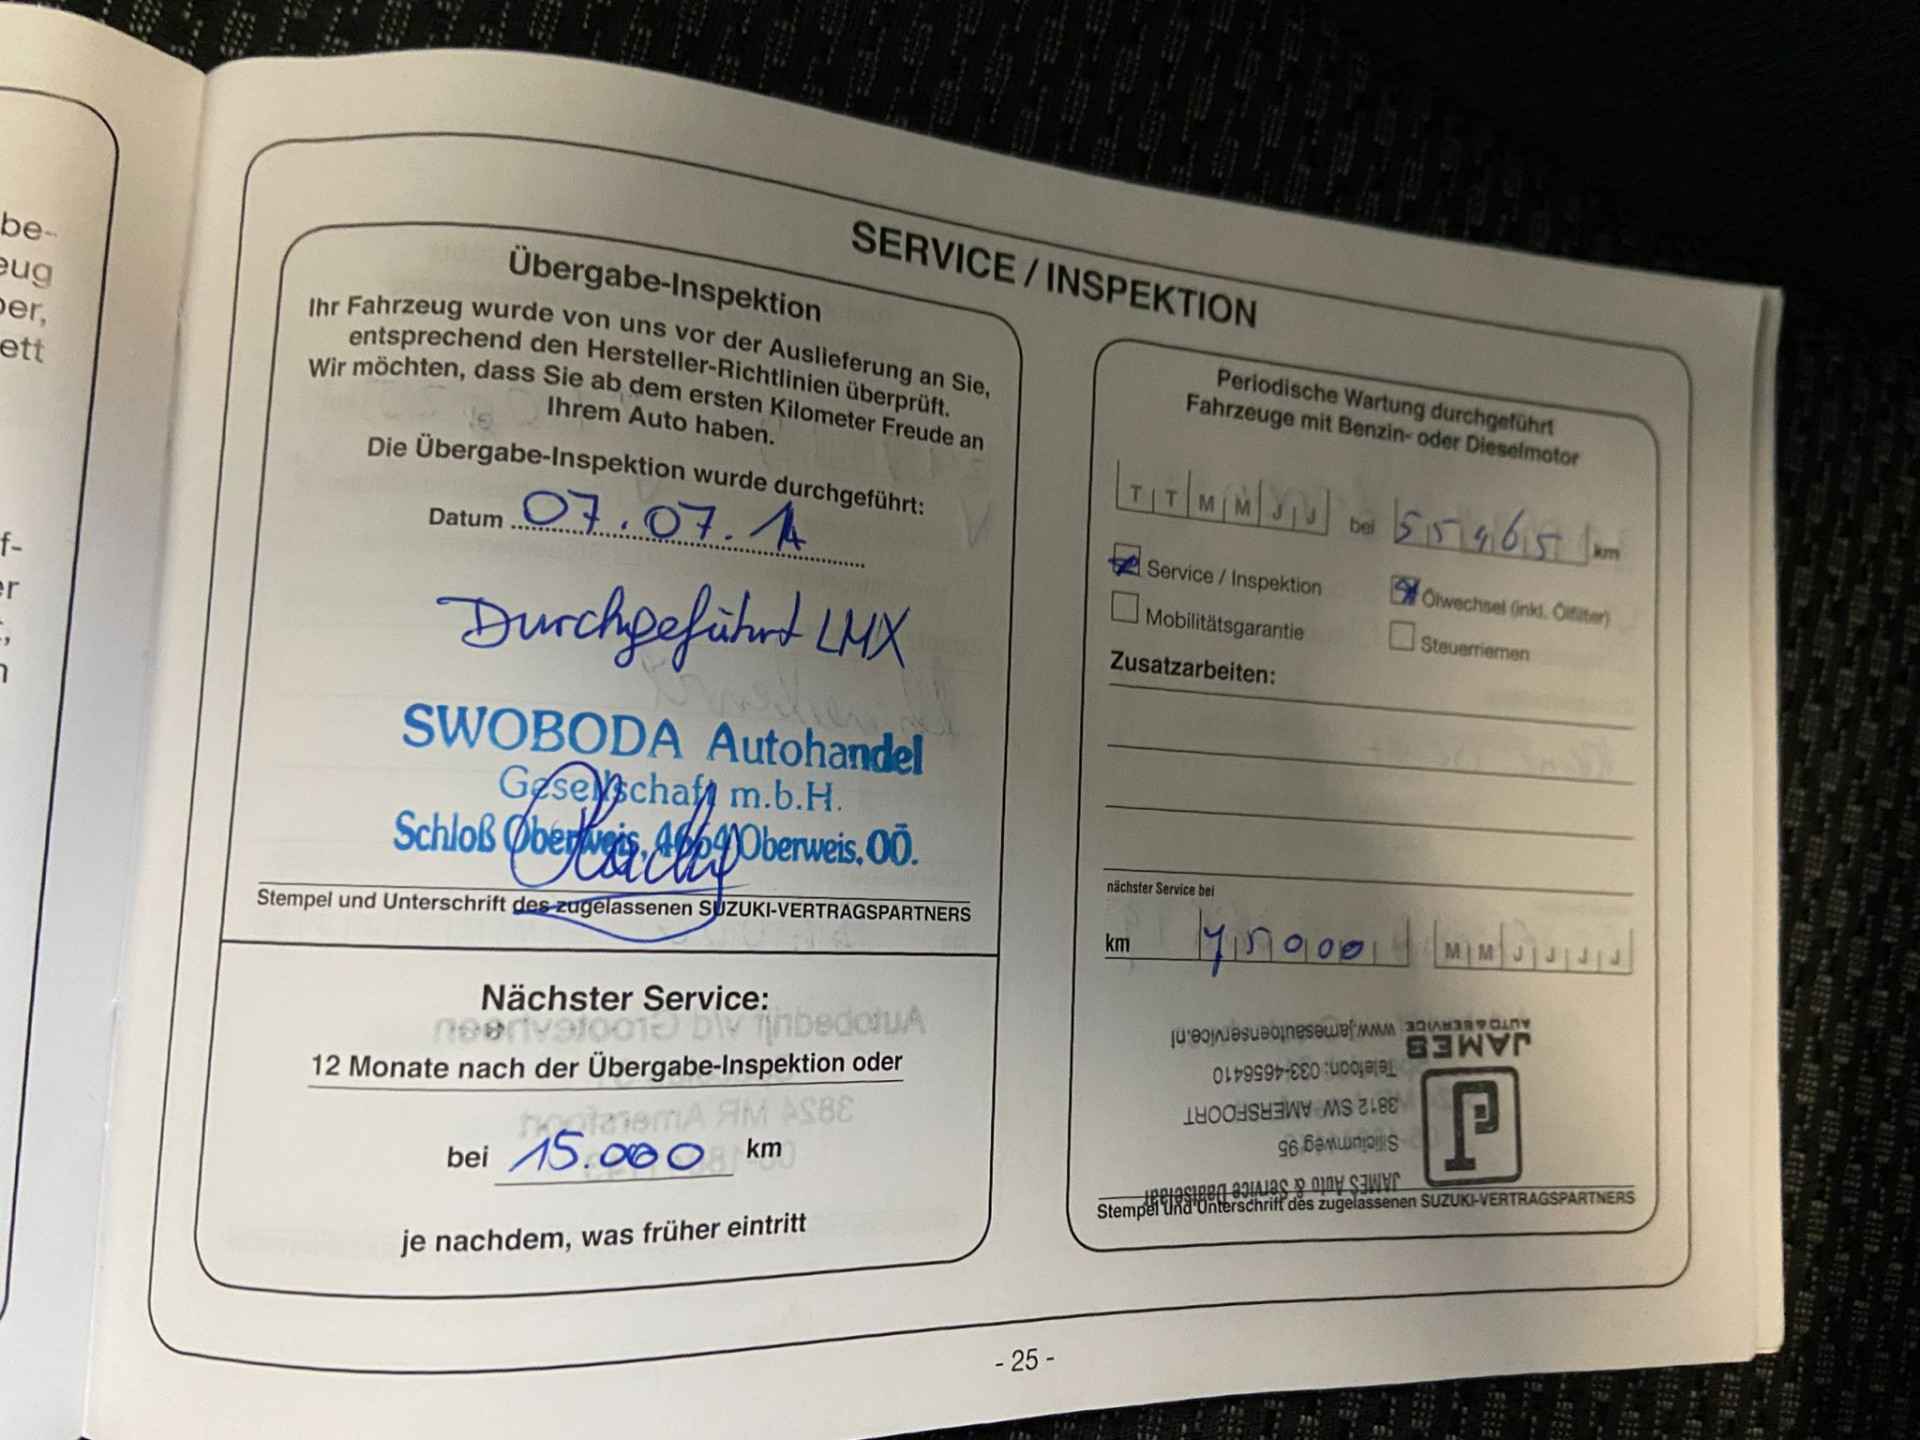 be-
eug
ber,
ett
f-
er
SERVICE / INSPEKTION
Übergabe-Inspektion
Ihr Fahrzeug wurde von uns vor der Auslieferung an Sie,
entsprechend den Hersteller-Richtlinien überprüft.
Wir möchten, dass Sie ab dem ersten Kilometer Freude an
Ihrem Auto haben.
Die Übergabe-Inspektion wurde durchgeführt:
Datum 07.07.14
Durchgeführt LMX
SWOBODA Autohandel
Gesellschaft m.b.H.
Schloß Oberweis, 4664 Oberweis, OÖ.
Stempel und Unterschrift des zugelassenen SUZUKI-VERTRAGSPARTNERS
Nächster Service:
12 Monate nach der Übergabe-Inspektion oder
bei 15.000 km
je nachdem, was früher eintritt
Periodische Wartung durchgeführt
Fahrzeuge mit Benzin- oder Dieselmotor
T T M M J J bei 55465 km
Service / Inspektion Ölwechsel (inkl. Ölfilter)
Mobilitätsgarantie Steuerriemen
Zusatzarbeiten:
nächster Service bei
km 75000 M M J J J J
JAMES Auto & Service Daatselaar
Siliciumweg 95
3812 SW AMERSFOORT
Telefoon: 033-4656410
www.jamesautoenservice.nl
JAMES
AUTO & SERVICE
Stempel und Unterschrift des zugelassenen SUZUKI-VERTRAGSPARTNERS
- 25 -